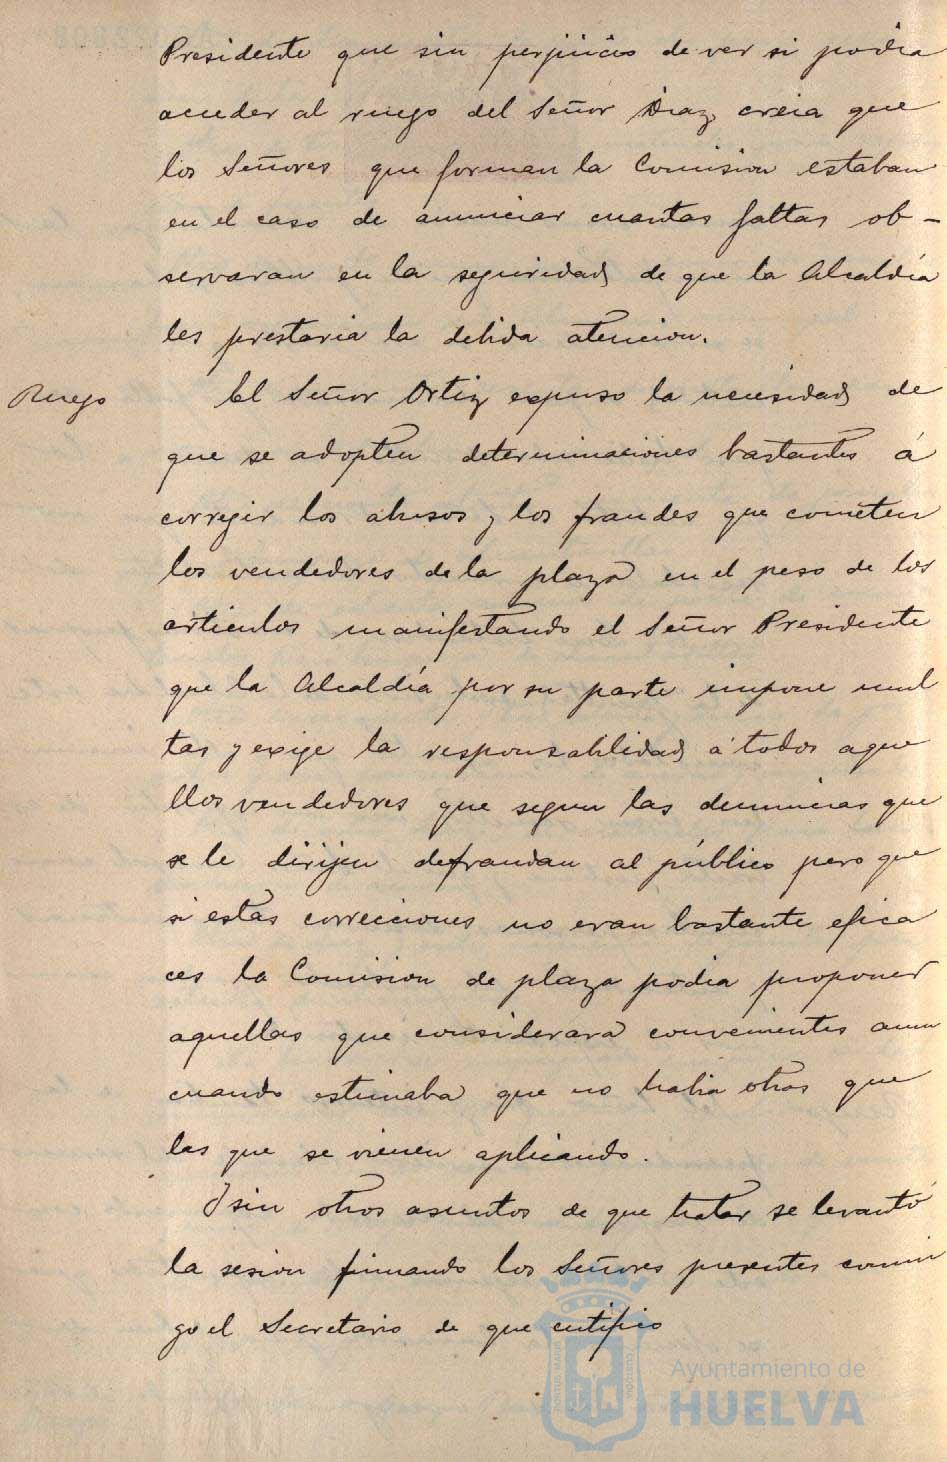 Presidente que sin perjuicio de ver si podia
acceder al ruego del Señor Diaz, creia que
los Señores que forman la Comision estaban
en el caso de anunciar cuantas faltas ob-
servaran en la seguridad de que la Alcaldía
les prestaria la debida atencion.
Ruego
El Señor Ortiz expuso la necesidad de
que se adopten determinaciones bastantes á
corregir los abusos y los fraudes que cometen
los vendedores de la plaza en el peso de los
articulos manifestando el Señor Presidente
que la Alcaldía por su parte impone mul
tas y exige la responsabilidad á todos aque
llos vendedores que segun las denuncias que
se le dirijen defraudan al público pero que
si estas correcciones no eran bastante efica
ces la Comision de plaza podia proponer
aquellas que considerara convenientes aun
cuando estimaba que no habia otras que
las que se vienen aplicando.
Y sin otros asuntos de que tratar se levantó
la sesion firmando los Señores presentes conmi
go el Secretario de que certifico
Ayuntamiento de
HUELVA